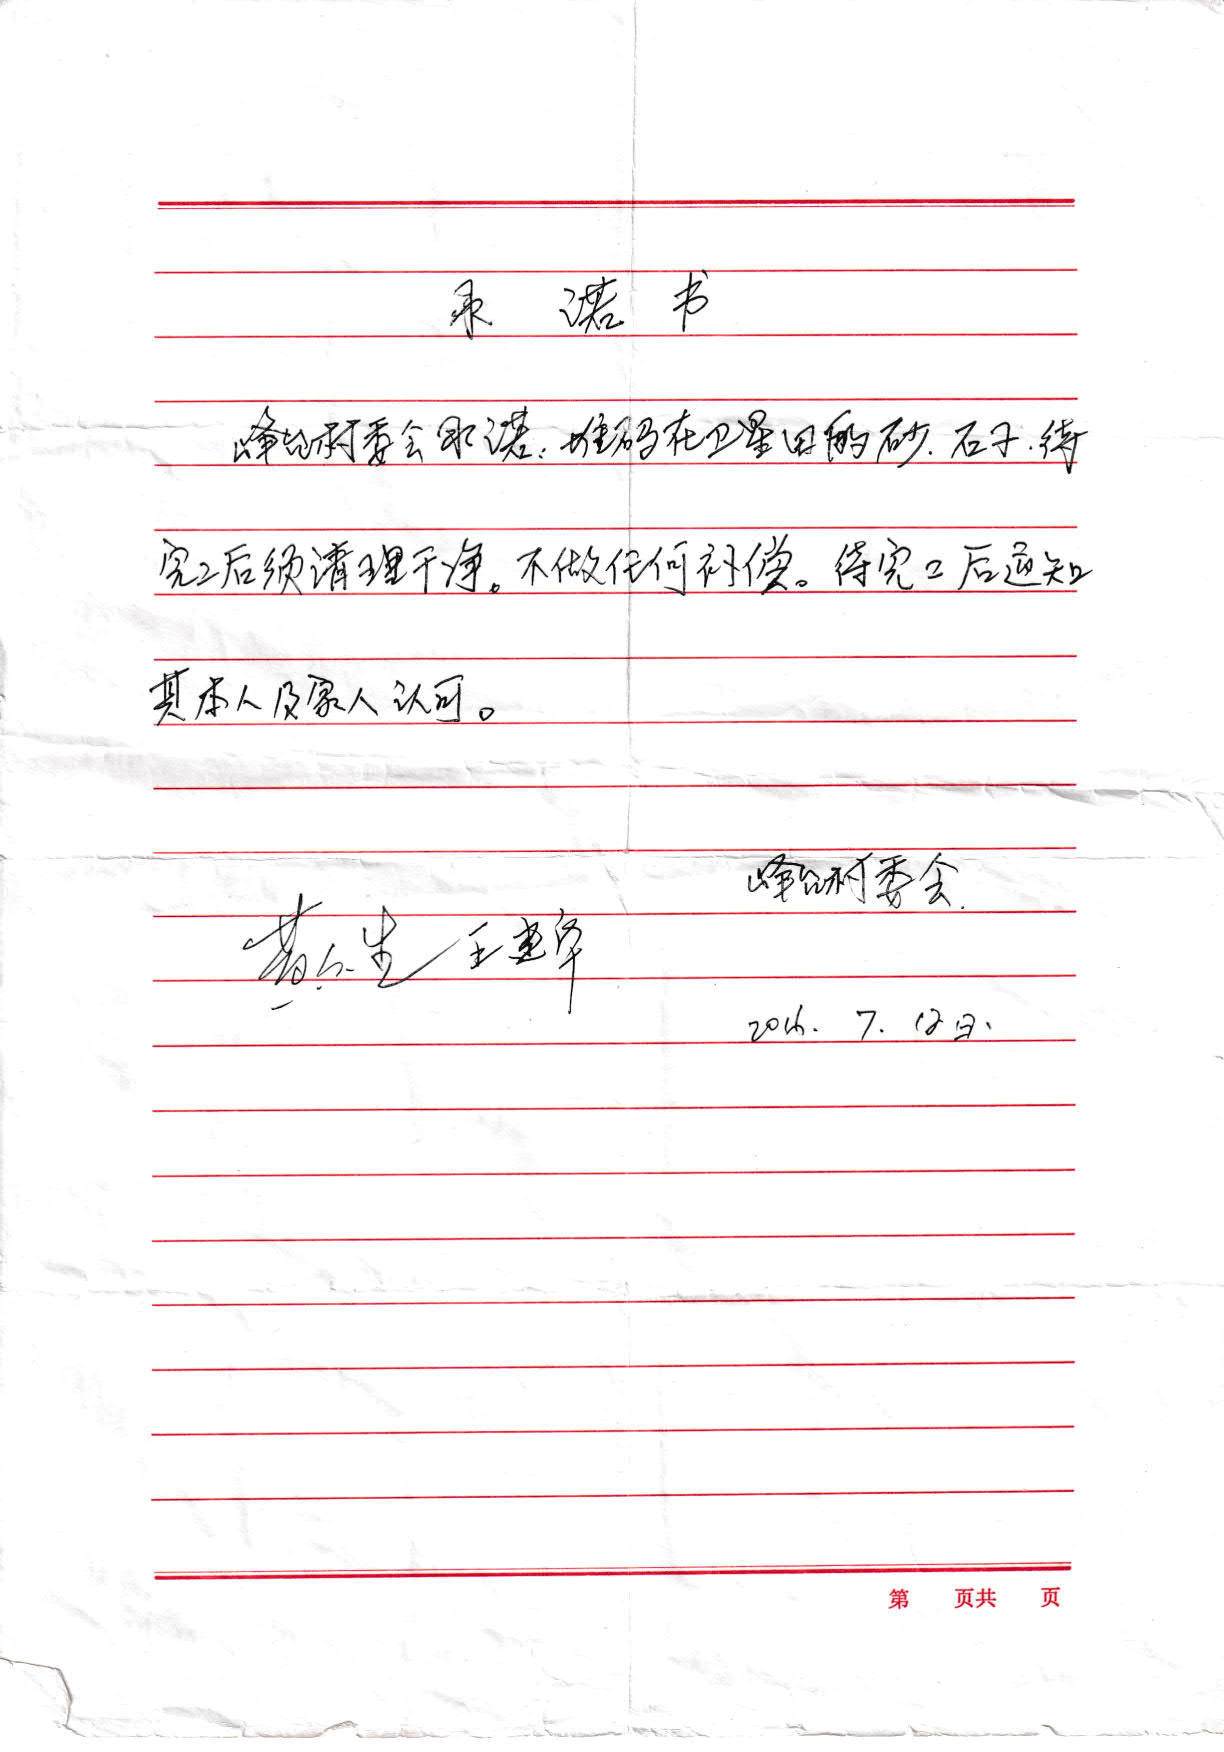 承 诺 书
峰出村委会承诺：堆码在卫星田的砂.石子.待
完工后须清理干净。不做任何补偿。待完工后通知
其本人及家人认可。
村委会.
黄 生 王建华
2016. 7. 12日.
第 页共 页